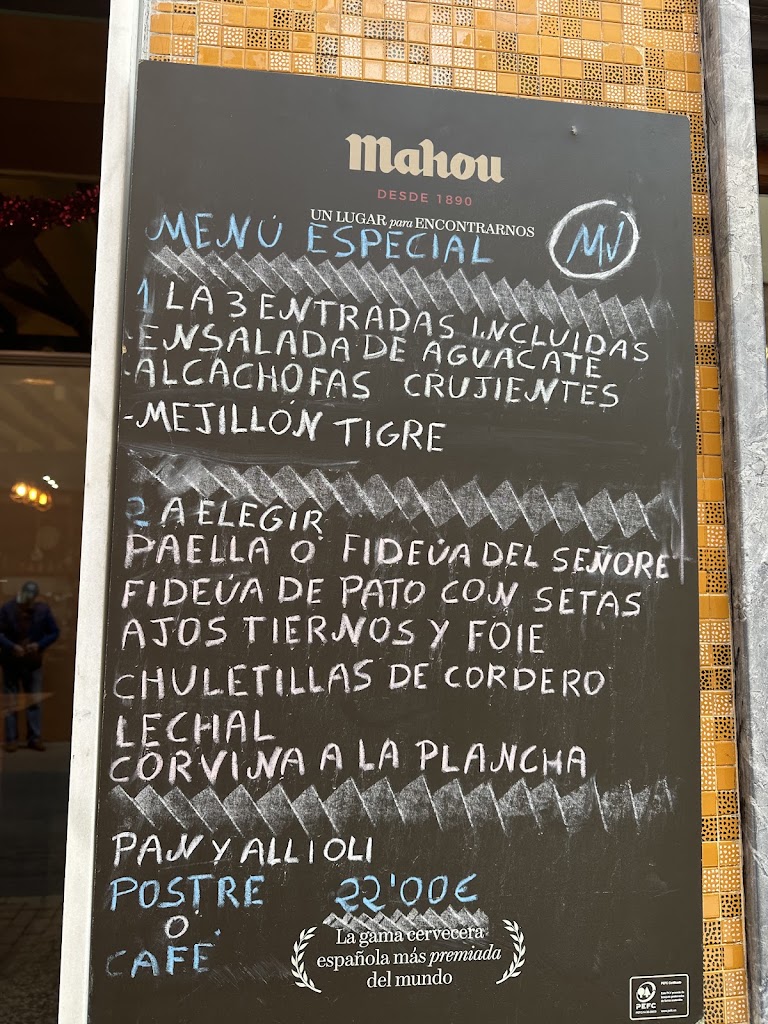 Mahou
DESDE 1890
UN LUGAR para ENCONTRARNOS
MENÚ ESPECIAL
MV
1 LA 3 ENTRADAS INCLUIDAS
-ENSALADA DE AGUACATE
-ALCACHOFAS CRUJIENTES
-MEJILLÓN TIGRE
2 A ELEGIR
PAELLA O FIDEÚA DEL SEÑORET
FIDEÚA DE PATO CON SETAS
AJOS TIERNOS Y FOIE
CHULETILLAS DE CORDERO
LECHAL
CORVINA A LA PLANCHA
PAN Y ALLIOLI
POSTRE 22'00€
O
CAFÉ
La gama cervecera
española más premiada
del mundo
PEFC